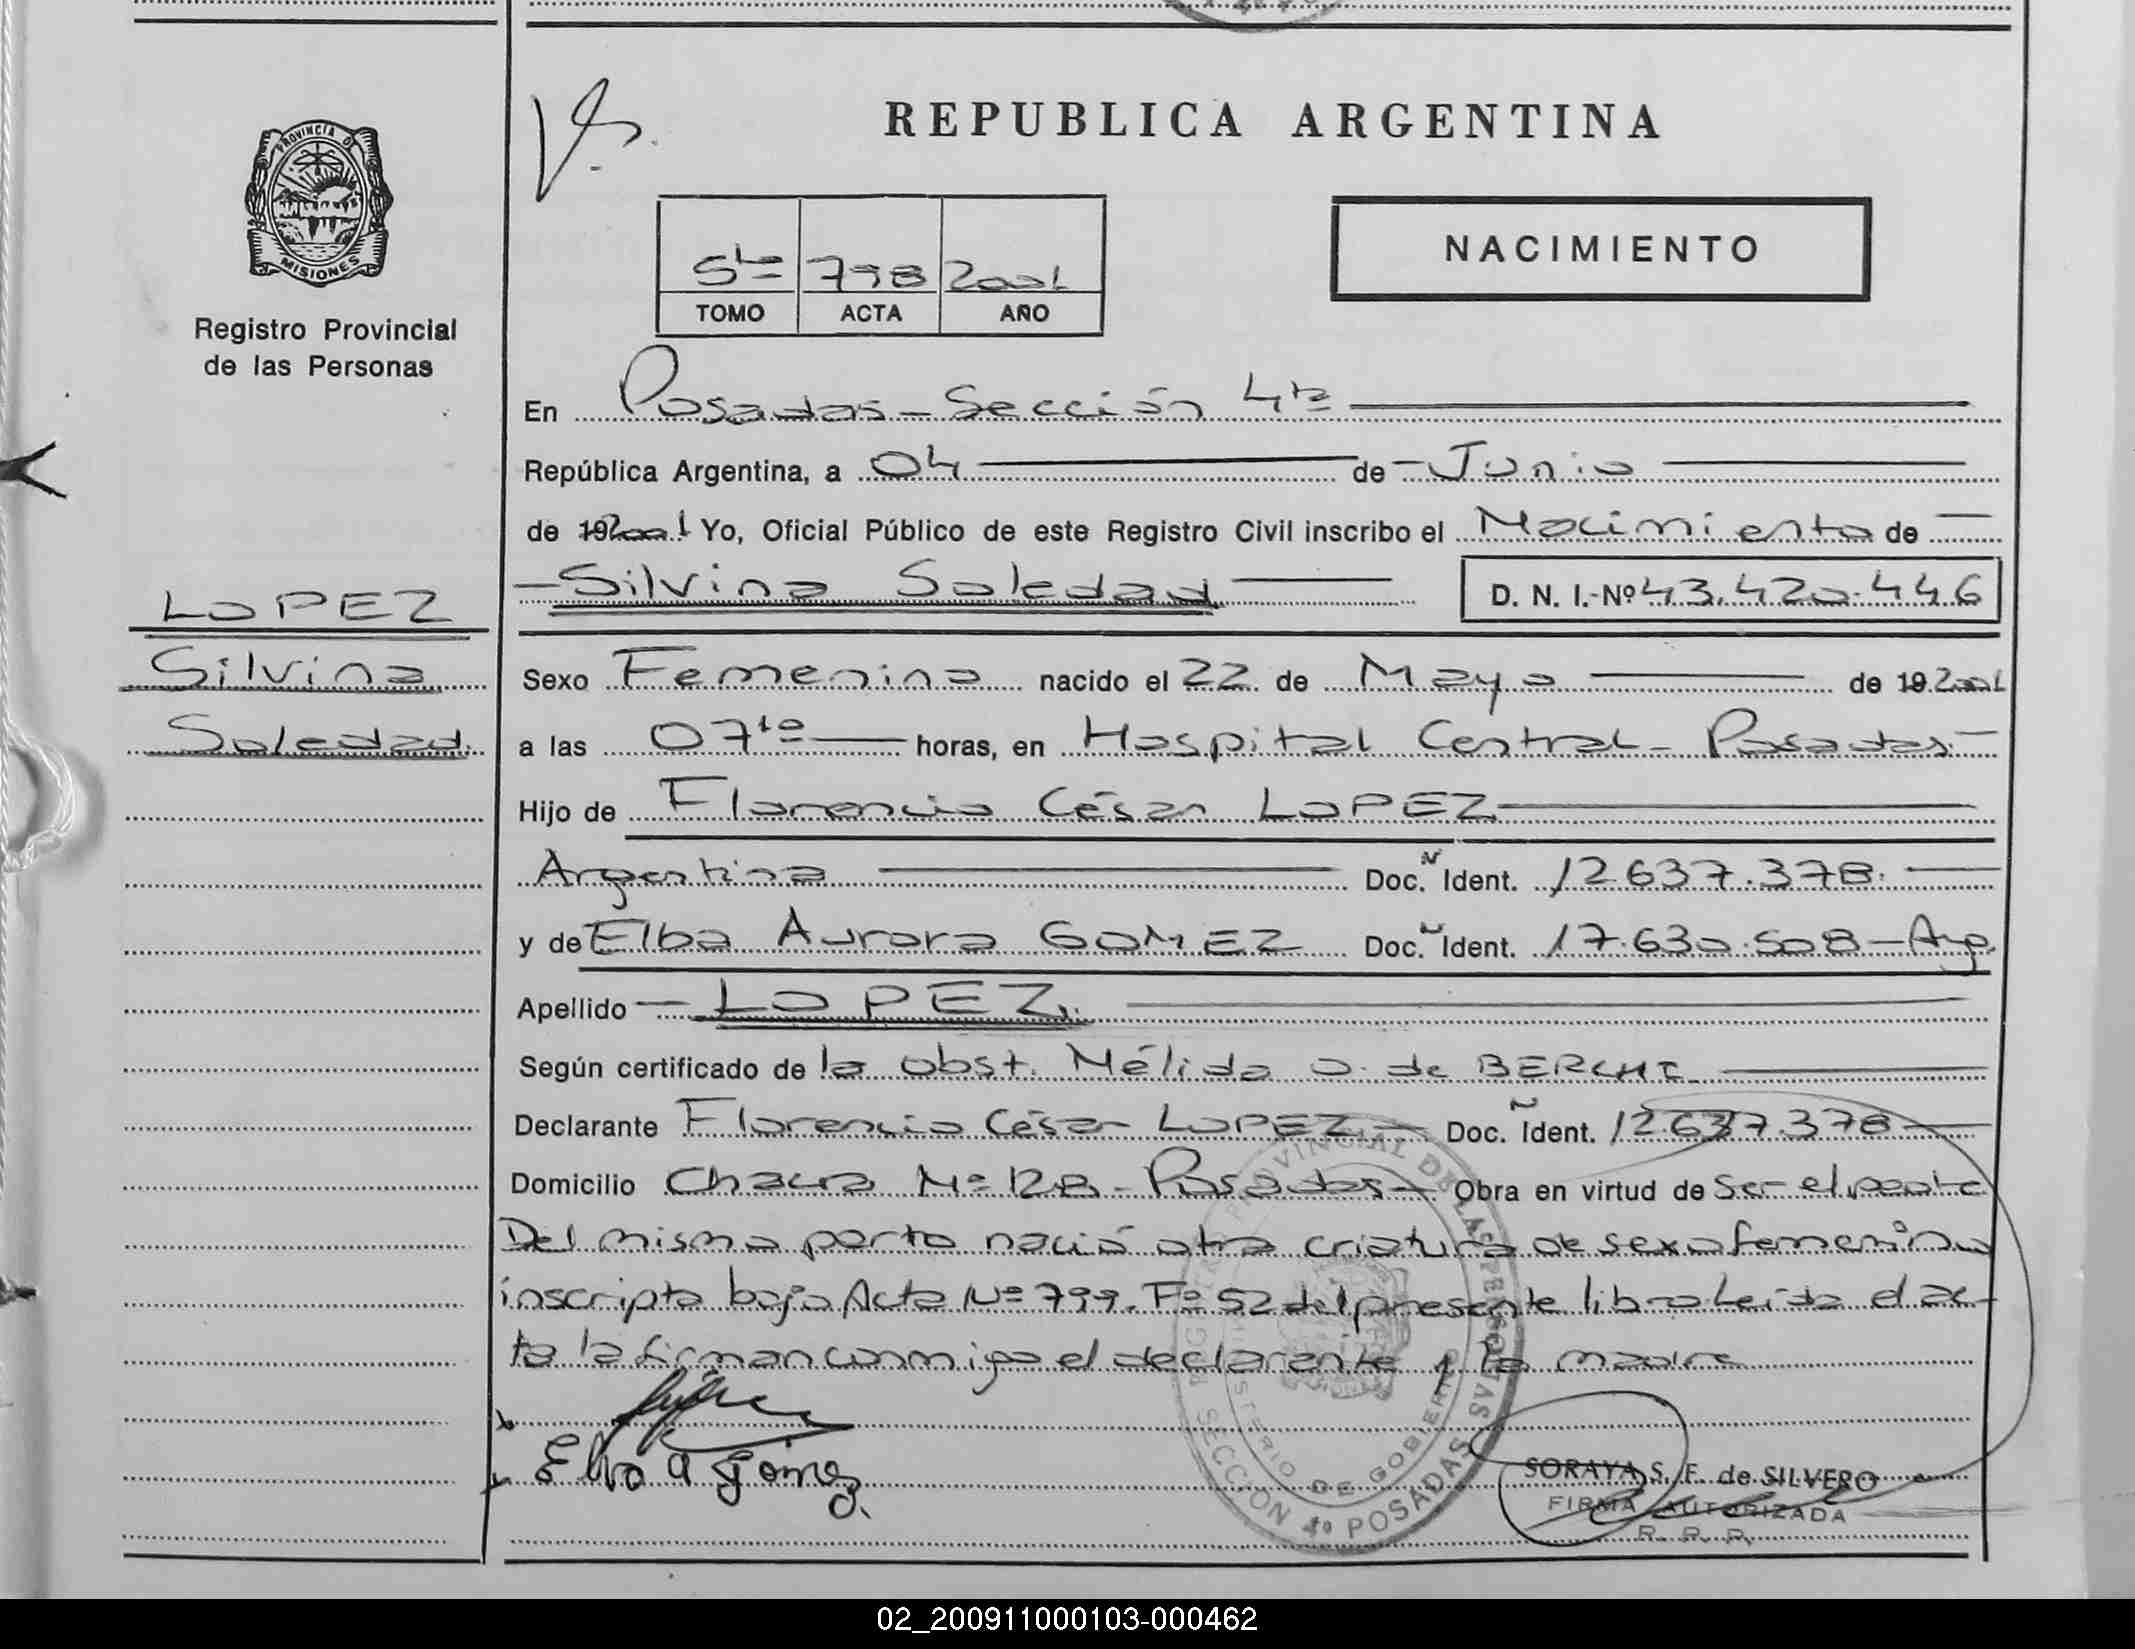 PROVINCIA D
MISIONES
Registro Provincial
de las Personas
REPUBLICA ARGENTINA
5to 798 2001
TOMO ACTA AÑO
NACIMIENTO
En Posadas - Sección 4ta
República Argentina, a 04 de Junio
de 192001 Yo, Oficial Público de este Registro Civil inscribo el Nacimiento de
Silvina Soledad D. N. I.-Nº 43.420.446
LOPEZ
Silvina
Soledad
Sexo Femenino nacido el 22 de Mayo de 19 2001
a las 07 horas, en Hospital Central - Posadas
Hijo de Florencio César LOPEZ
Argentina Doc. N Ident. 12.637.378.
y de Elba Aurora GOMEZ Doc. Ident. 17.630.508 - Arg.
Apellido LOPEZ.
Según certificado de la obst. Nélida O. de BERCHI
Declarante Florencio César LOPEZ Doc. Ident. 12.637.378
Domicilio Chacra Nº 128 - Posadas Obra en virtud de ser el padre
Del mismo parto nació otra criatura de sexo femenino
inscripta bajo Acta Nº 799. Fº 52 del presente libro. Leída el ac-
ta la firman conmigo el declarante y la madre
Elva A Gómez.
PROVINCIAL DE LAS PERSONAS
MINISTERIO DE GOBIERNO
SECCION 4º POSADAS
SORAYA S. F. de SILVERO
FIRMA AUTORIZADA
R. P. P.
02_200911000103-000462